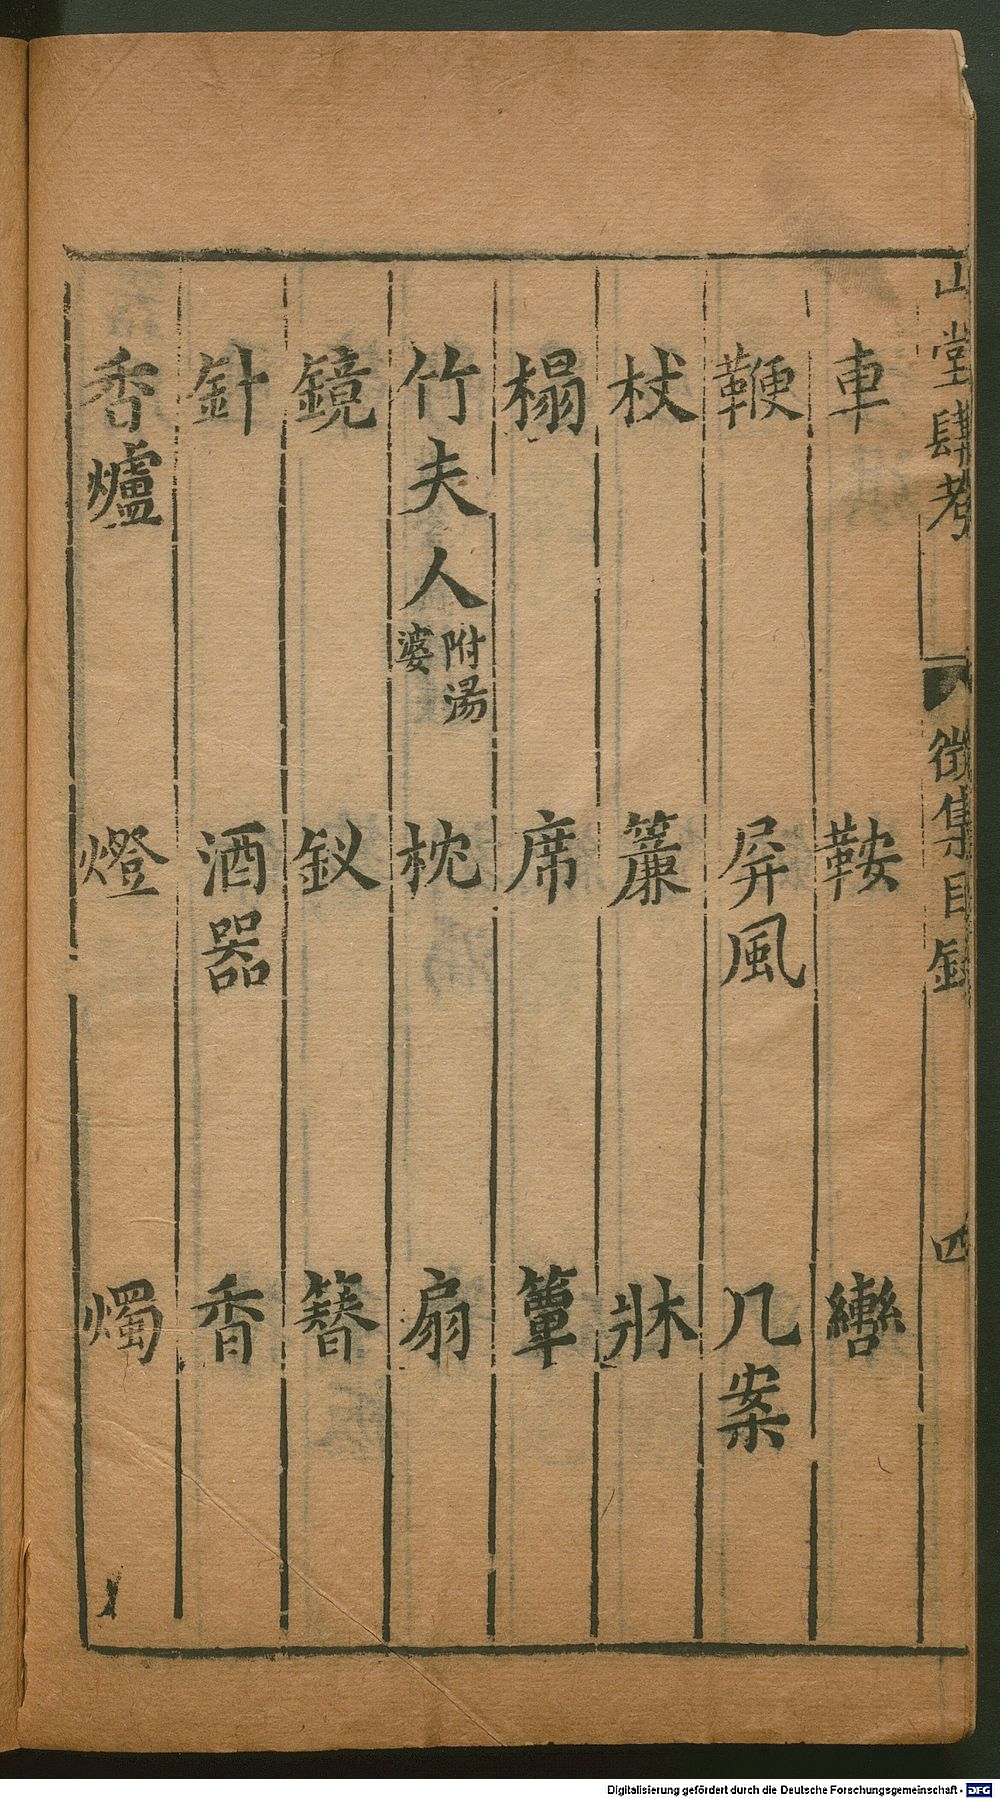 山堂肆考 徵集目錄 四
車 鞍 轡
鞭 屛風 几案
杖 簾 牀
榻 席 簟
竹夫人附湯婆 枕 扇
鏡 釵 簪
針 酒器 香
香爐 燈 燭
Digitalisierung gefördert durch die Deutsche Forschungsgemeinschaft - DFG